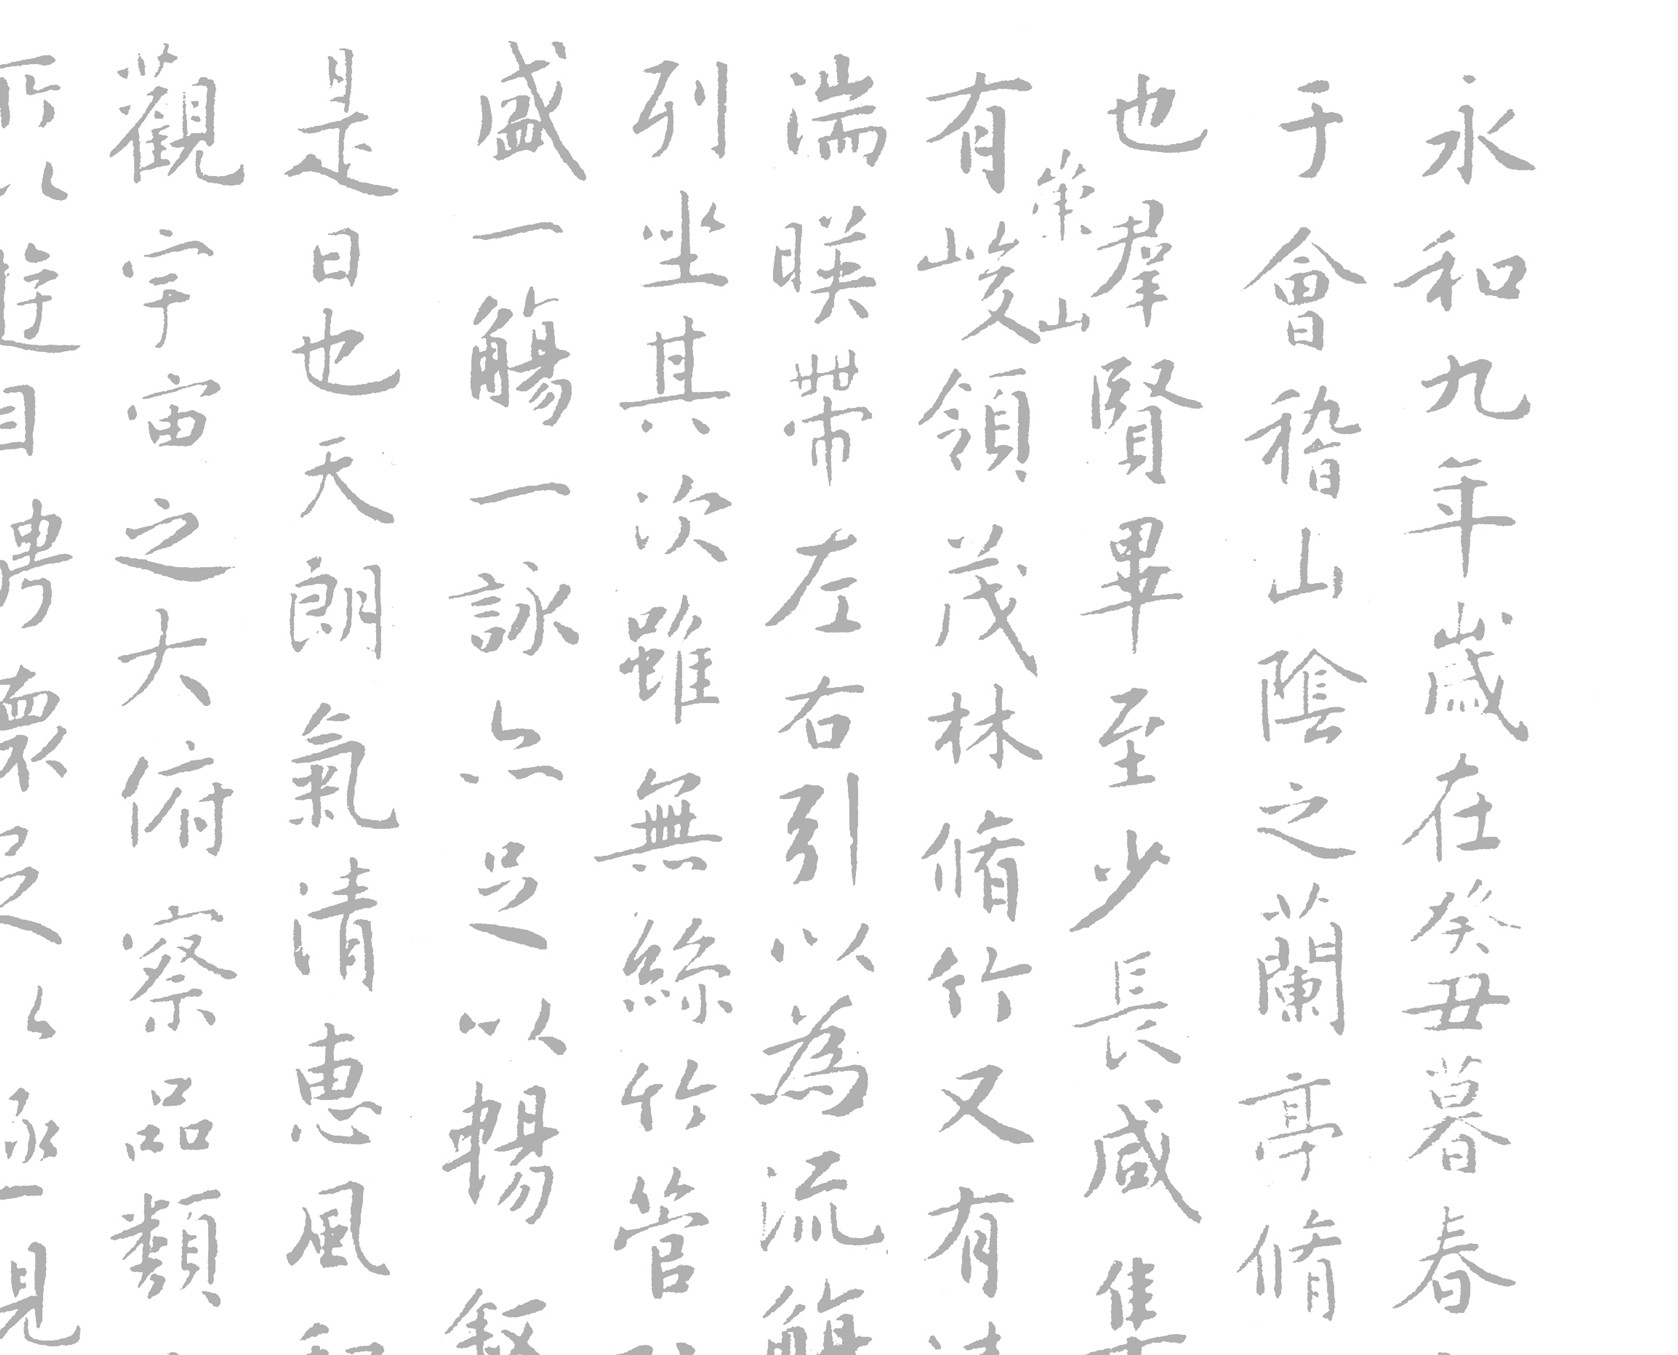 永和九年歲在癸丑暮春
于會稽山陰之蘭亭脩
也羣賢畢至少長咸集
崇山
有峻領茂林脩竹又有
湍暎帶左右引以為流觴
列坐其次雖無絲竹管
盛一觴一詠亦足以暢敘
是日也天朗氣清惠風和
觀宇宙之大俯察品類
所以遊目騁懷足以極視